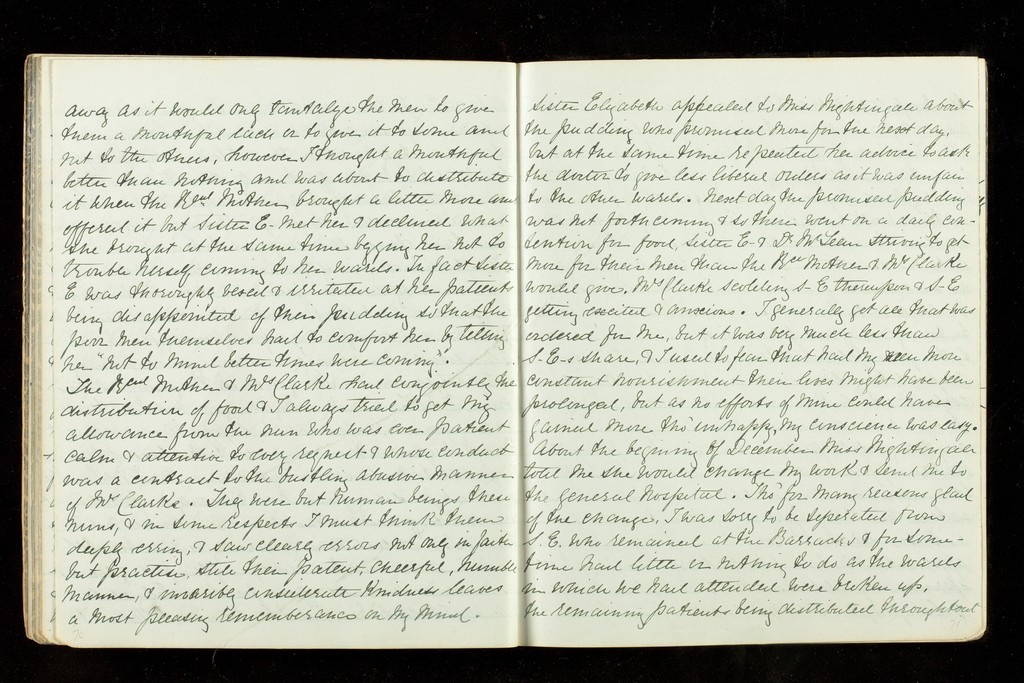 away as it would only tantalize the men to give
them a mouthful each or to give it to some and
not to the others, however I thought a mouthful
better than nothing and was about to distribute
it when the Revd Mother brought a little more and
offered it but Sister E- met her & declined what
she brought at the same time begging her not to
trouble herself coming to her wards. In fact Sister
E was thoroughly vexed & irritated at her patients
being disappointed of their pudding so that the
poor men themselves had to comfort her by telling
her "not to mind better times were coming".
The Revd Mother & Mrs Clarke had conjointly the
distribution of food & I always tried to get my
allowance from the nun who was ever patient
calm & attentive to every request & whose conduct
was a contrast to the bustling abusive manner
of Mrs Clarke. They were but human beings these
nuns, & in some respects I must think them
deeply erring, & saw clearly errors not only in faith
but practise, still their patient, cheerful, humble
manner, & invaribly considerate kindness leaves
a most pleasing rememberance on my mind.
Sister Elizabeth appealed to Miss Nightingale about
the pudding who promised more for the next day,
but at the same time repeated her advice to ask
the doctor to give less liberal orders as it was unfair
to the other wards. Next day the promised pudding
was not forthcoming & so there went on a daily con-
tention for food, Sister E- & Dr McLean striving to get
more for their men than the Revd Mother & Mrs Clarke
would give, Mrs Clarke scolding S- E thereupon & S- E
getting excited & anxious. I generally got all that was
ordered for me, but it was very much less than
S- E-s share, & I used to fear that had my men more
constant nourishment their lives might have been
prolonged, but as no efforts of mine could have
gained more tho' unhappy, my conscience was easy.
About the begining of December Miss Nightingale
told me she would change my work & send me to
the General Hospital. Tho' for many reasons glad
of the change, I was sorry to be seperated from
S. E. who remained at the Barracks & for some-
time had little or nothing to do as the wards
in which we had attended were broken up,
the remaining patients being distributed throughout